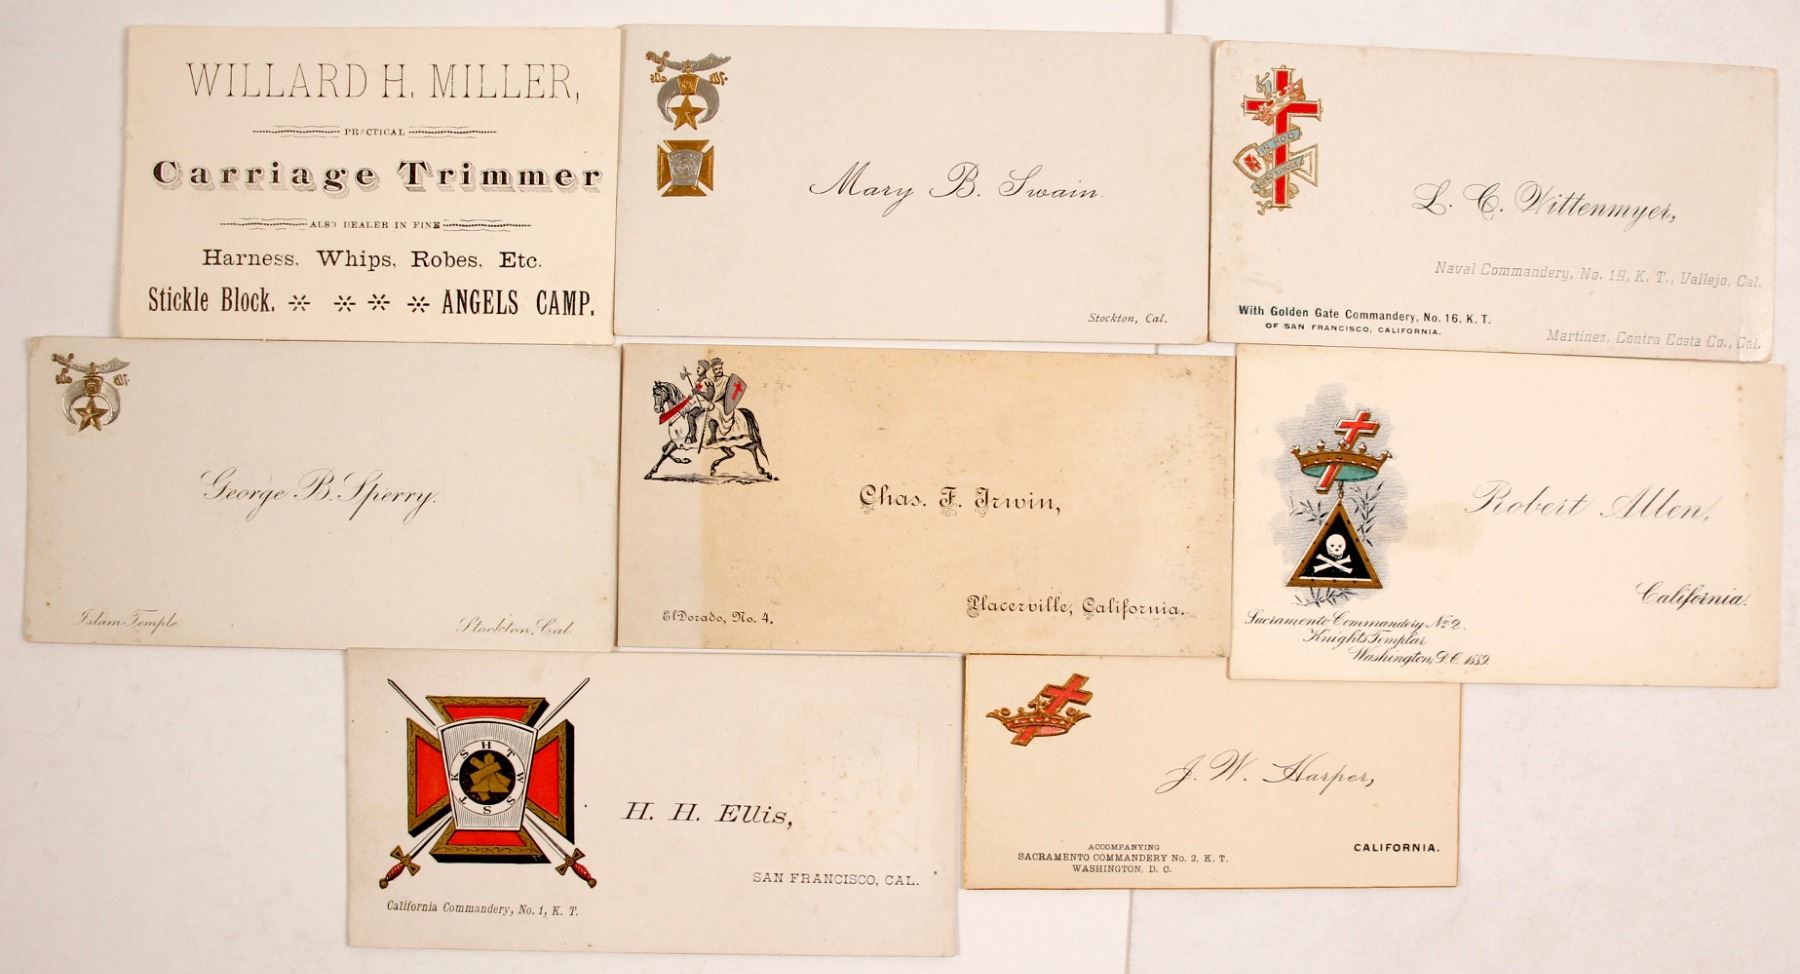 WILLARD H. MILLER,
PRACTICAL
Carriage Trimmer
ALSO DEALER IN FINE
Harness, Whips, Robes, Etc.
Stickle Block. ANGELS CAMP.
Mary B. Swain.
Stockton, Cal.
IN HOC
L. C. Wittenmyer,
Naval Commandery, No. 19, K. T., Vallejo, Cal.
With Golden Gate Commandery, No. 16. K. T.
OF SAN FRANCISCO, CALIFORNIA.
Martinez, Contra Costa Co., Cal.
George B. Sperry.
Islam Temple.
Stockton, Cal.
Chas. F. Irwin,
ElDorado, No. 4.
Placerville, California.
Robert Allen,
California.
Sacramento Commandery No. 2.
Knights Templar
Washington, D.C. 1889.
H T W S S T K S
H. H. Ellis,
SAN FRANCISCO, CAL.
California Commandery, No. 1, K. T.
J. W. Harper,
ACCOMPANYING
SACRAMENTO COMMANDERY No. 2, K. T.
WASHINGTON, D. C.
CALIFORNIA.